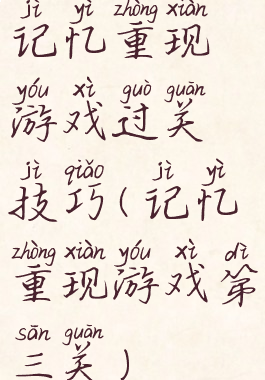 jì yì zhòng xiàn
记忆重现
yóu xì guò guān
游戏过关
jì qiǎo jì yì
技巧(记忆
zhòng xiàn yóu xì dì
重现游戏第
sān guān
三关)